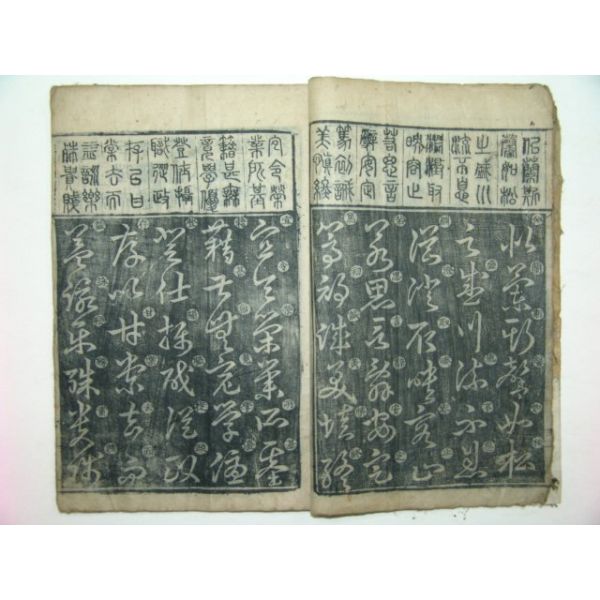 似蘭斯
馨如松
之盛川
流不息
淵澄取
映容止
若思言
辭安定
篤初誠
美慎終
似蘭斯馨如松
之盛川流不息
淵澄取映容止
若思言辭安定
篤初誠美慎終
宜令榮
業所基
籍甚無
竟學優
登仕攝
職從政
存以甘
棠去而
益詠樂
殊貴賤
宜令榮業所基
籍甚無竟學優
登仕攝職從政
存以甘棠去而
益詠樂殊貴賤